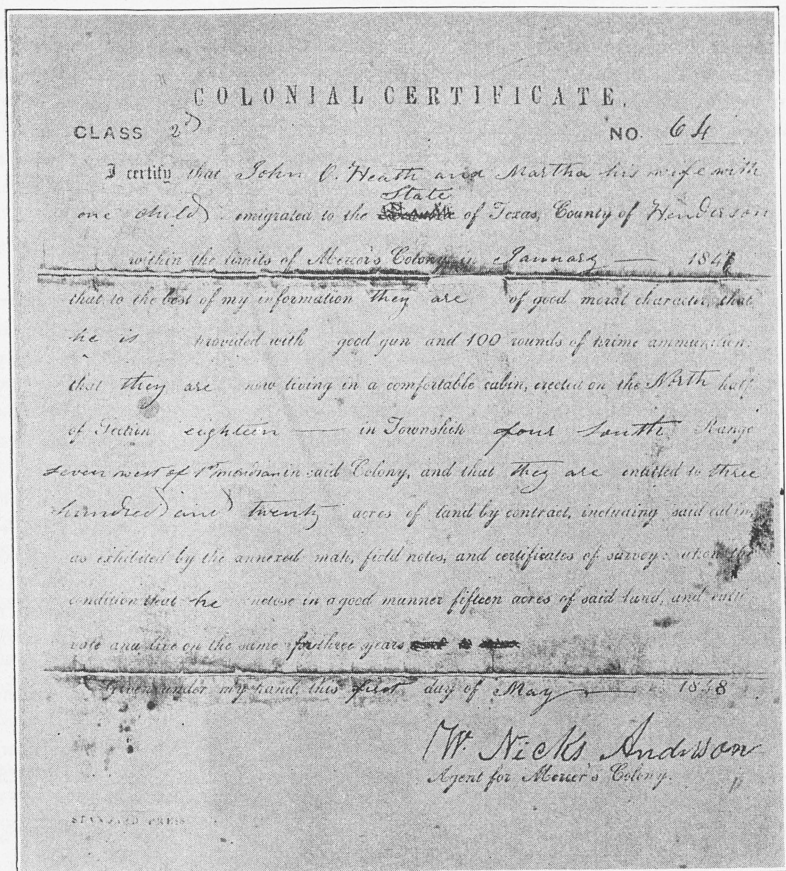 COLONIAL CERTIFICATE.
CLASS 2d NO. 64
I certify that John O. Heath and Martha his wife with
State
one child emigrated to the of Texas, County of Henderson
within the limits of Mercer's Colony in January — 1847
that to the best of my information they are of good moral character, that
he is provided with good gun and 100 rounds of prime ammunition:
that they are now living in a comfortable cabin, erected on the North half
of Section eighteen — in Township four South Range
seven west of 1st meridian in said Colony, and that they are entitled to three
hundred and twenty acres of land by contract, including said cabin,
as exhibited by the annexed map, field notes, and certificates of survey: upon the
condition that he enclose in a good manner fifteen acres of said land, and culti-
vate and live on the same for three years
Given under my hand, this first day of May — 1848
W. Nicks Anderson
Agent for Mercer's Colony.
STANDARD PRESS